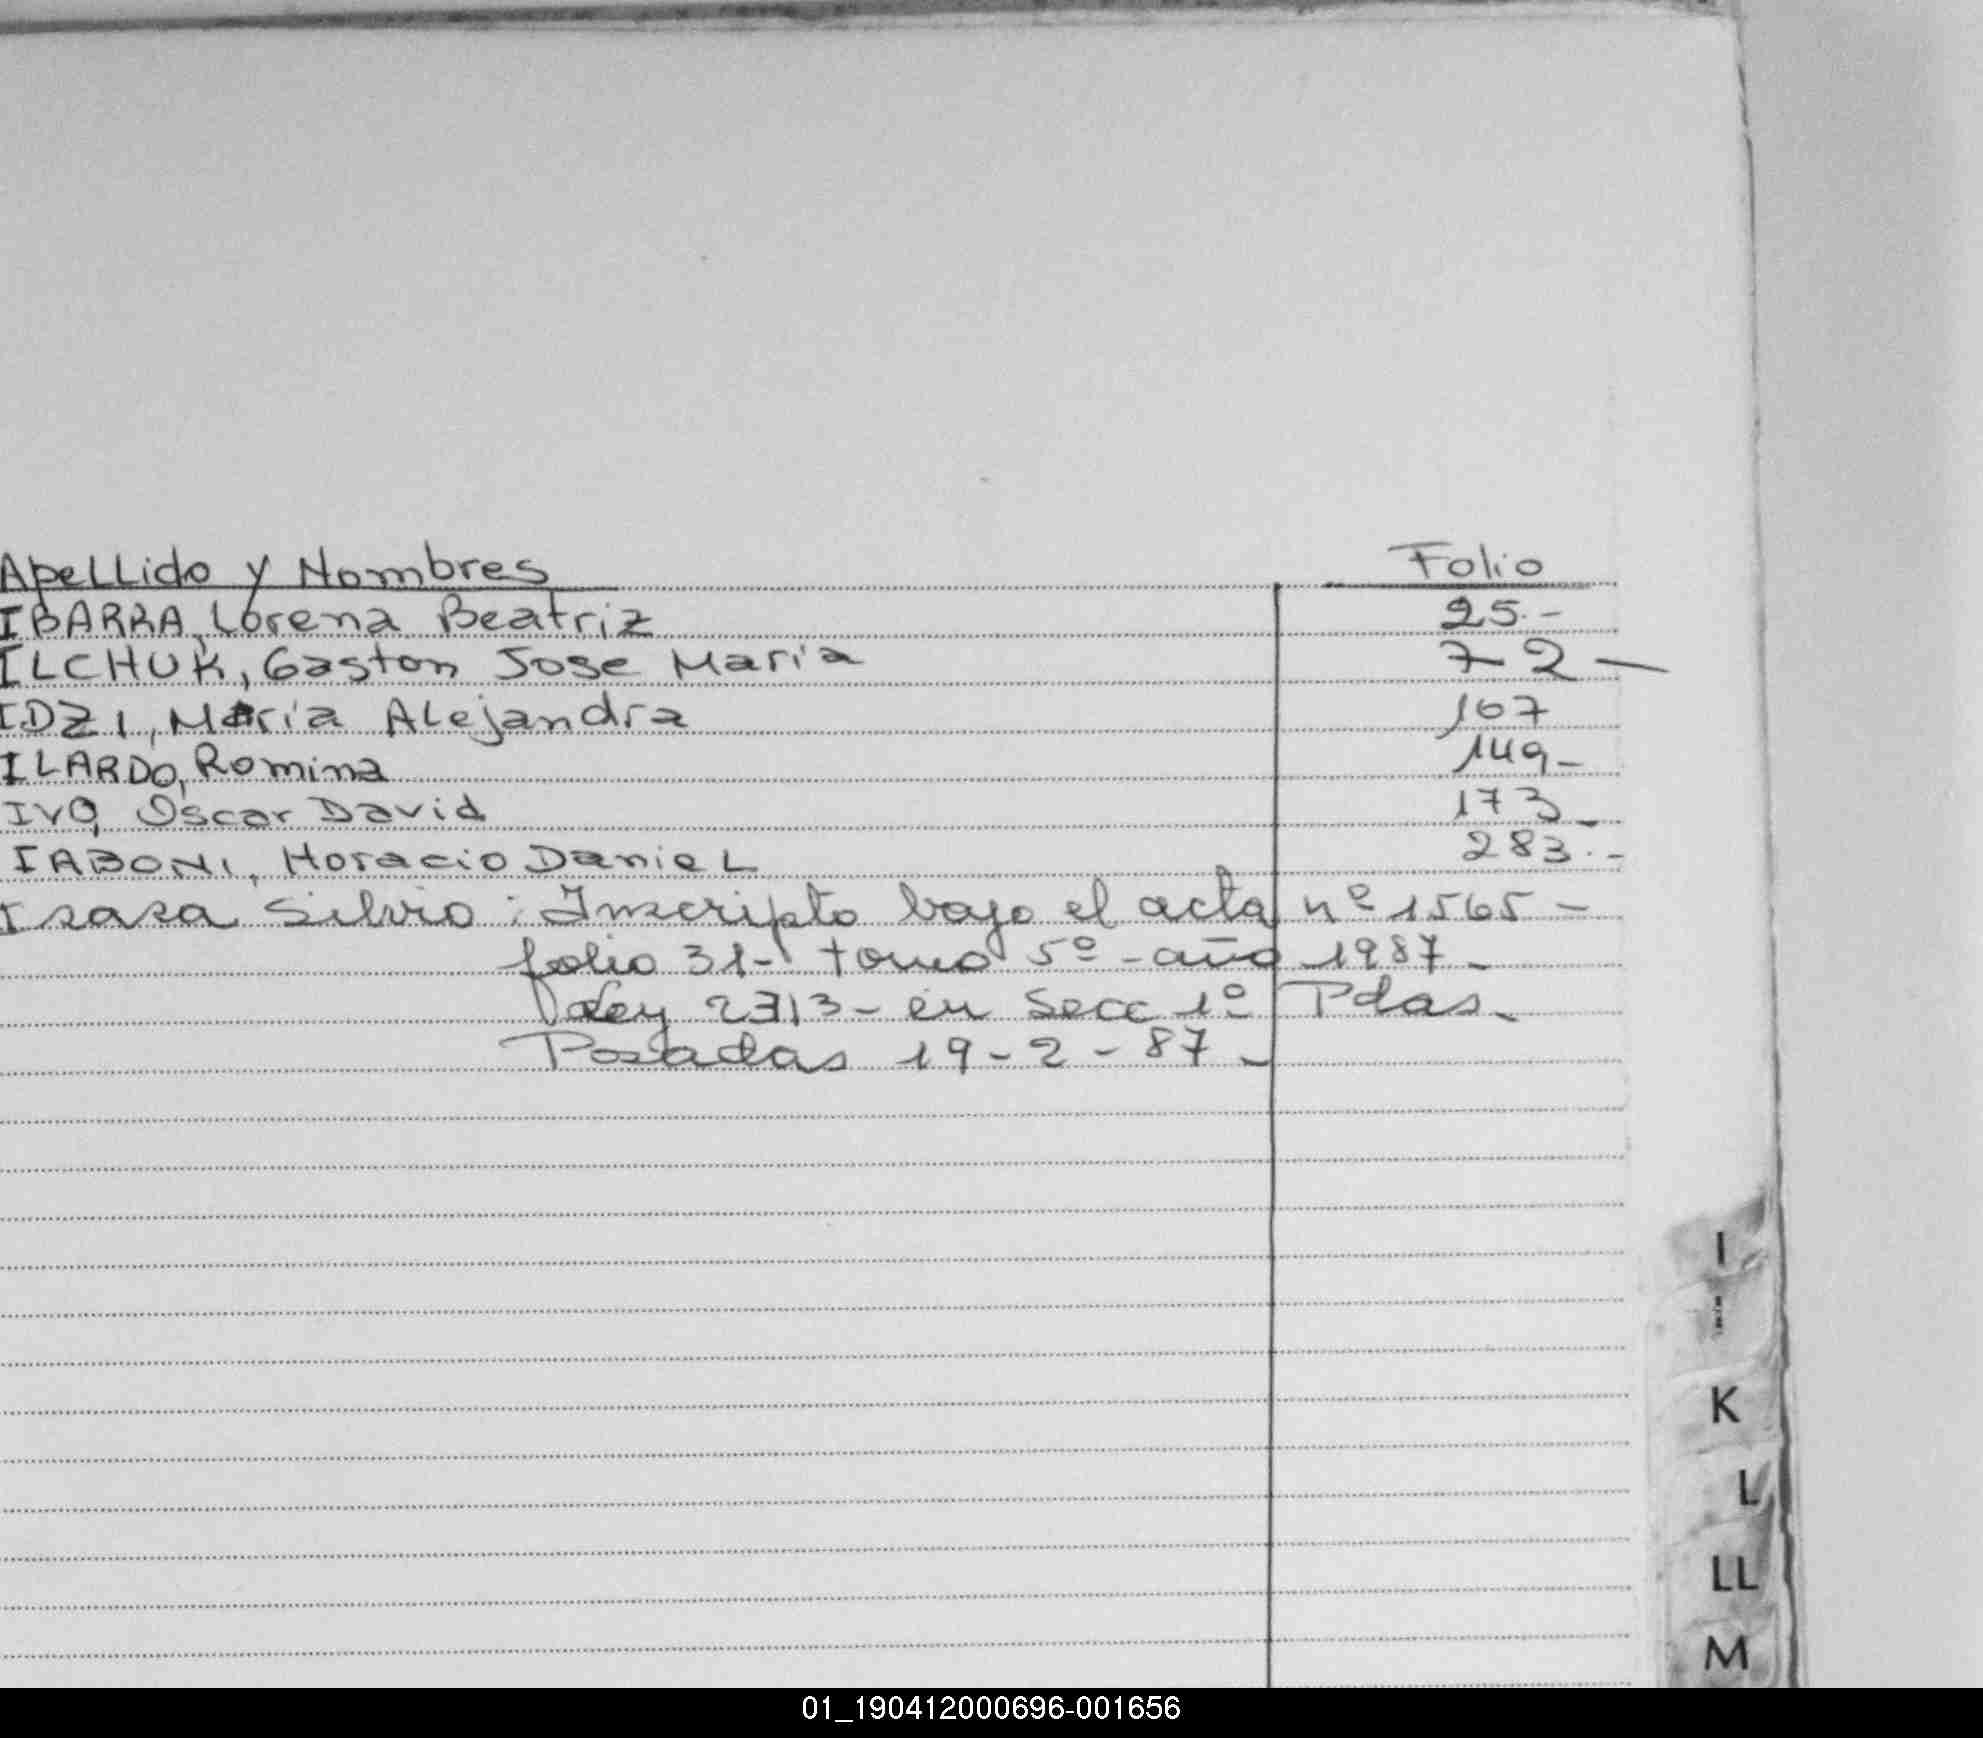 Apellido y Nombres Folio
IBARRA, Lorena Beatriz 25.-
ILCHUK, Gaston Jose Maria 72-
IDZI, Maria Alejandra 167
ILARDO, Romina 149-
IVO, Oscar David 173-
IABONI, Horacio Daniel 283.-
Isasa Silvio: Inscripto bajo el acta nº 1565-
folio 31- tomo 5º - año 1987-
Ley 2313- en Secc 1º Pdas.
Posadas 19-2-87-
I
K
L
LL
M
01_190412000696-001656